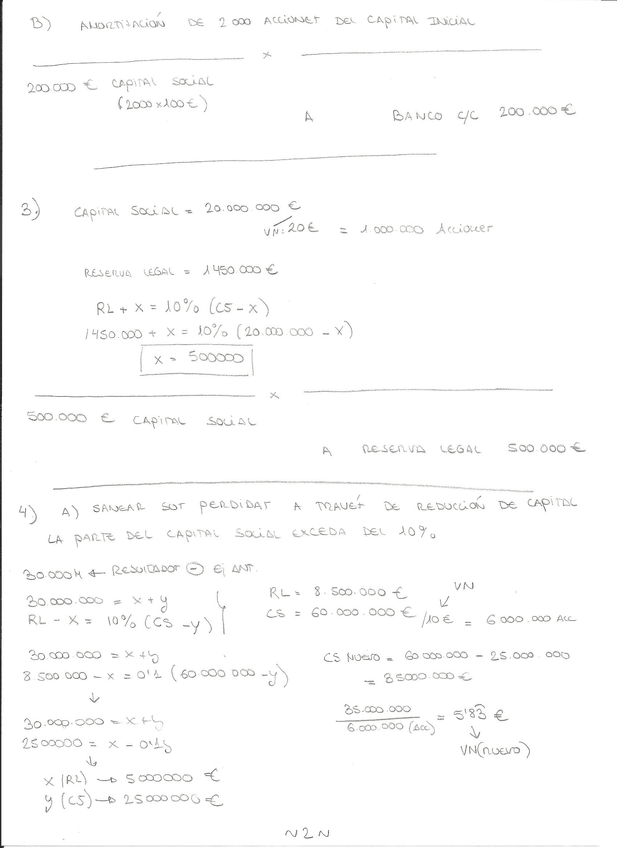 B) AMORTIZACIÓN DE 2 000 ACCIONES DEL CAPITAL INICIAL
x
200.000 € CAPITAL SOCIAL
(2000x100€)
A BANCO C/C 200.000€
3.) CAPITAL SOCIAL = 20.000 000 €
VN=20€ = 1.000.000 Acciones
RESERVA LEGAL = 1450.000€
RL + X = 10% (CS - X)
1450.000 + X = 10% (20.000 000 - X)
X = 500000
x
500.000 € CAPITAL SOCIAL
A RESERVA LEGAL 500.000€
4) A) SANEAR SUS PERDIDAS A TRAVÉS DE REDUCCIÓN DE CAPITAL
LA PARTE DEL CAPITAL SOCIAL EXCEDA DEL 10%
30.000M ← RESULTADOS ⊖ EJ ANT.
30.000.000 = x + y
RL - X = 10% (CS - y)
RL = 8.500.000 € VN
CS = 60.000.000 € /10€ = 6 000.000 ACC
30 000 000 = x + y
8 500 000 - x = 0'1 (60 000 000 - y)
↓
CS NUEVO = 60 000 000 - 25.000.000
= 35000.000€
30.000.000 = x + y
2500000 = x - 0'1y
↓
35.000.000
6.000.000 (ACC) = 5'83 €
↓
VN(NUEVO)
X (RL) → 5000000 €
y (CS) → 25000000€
~ 2 ~